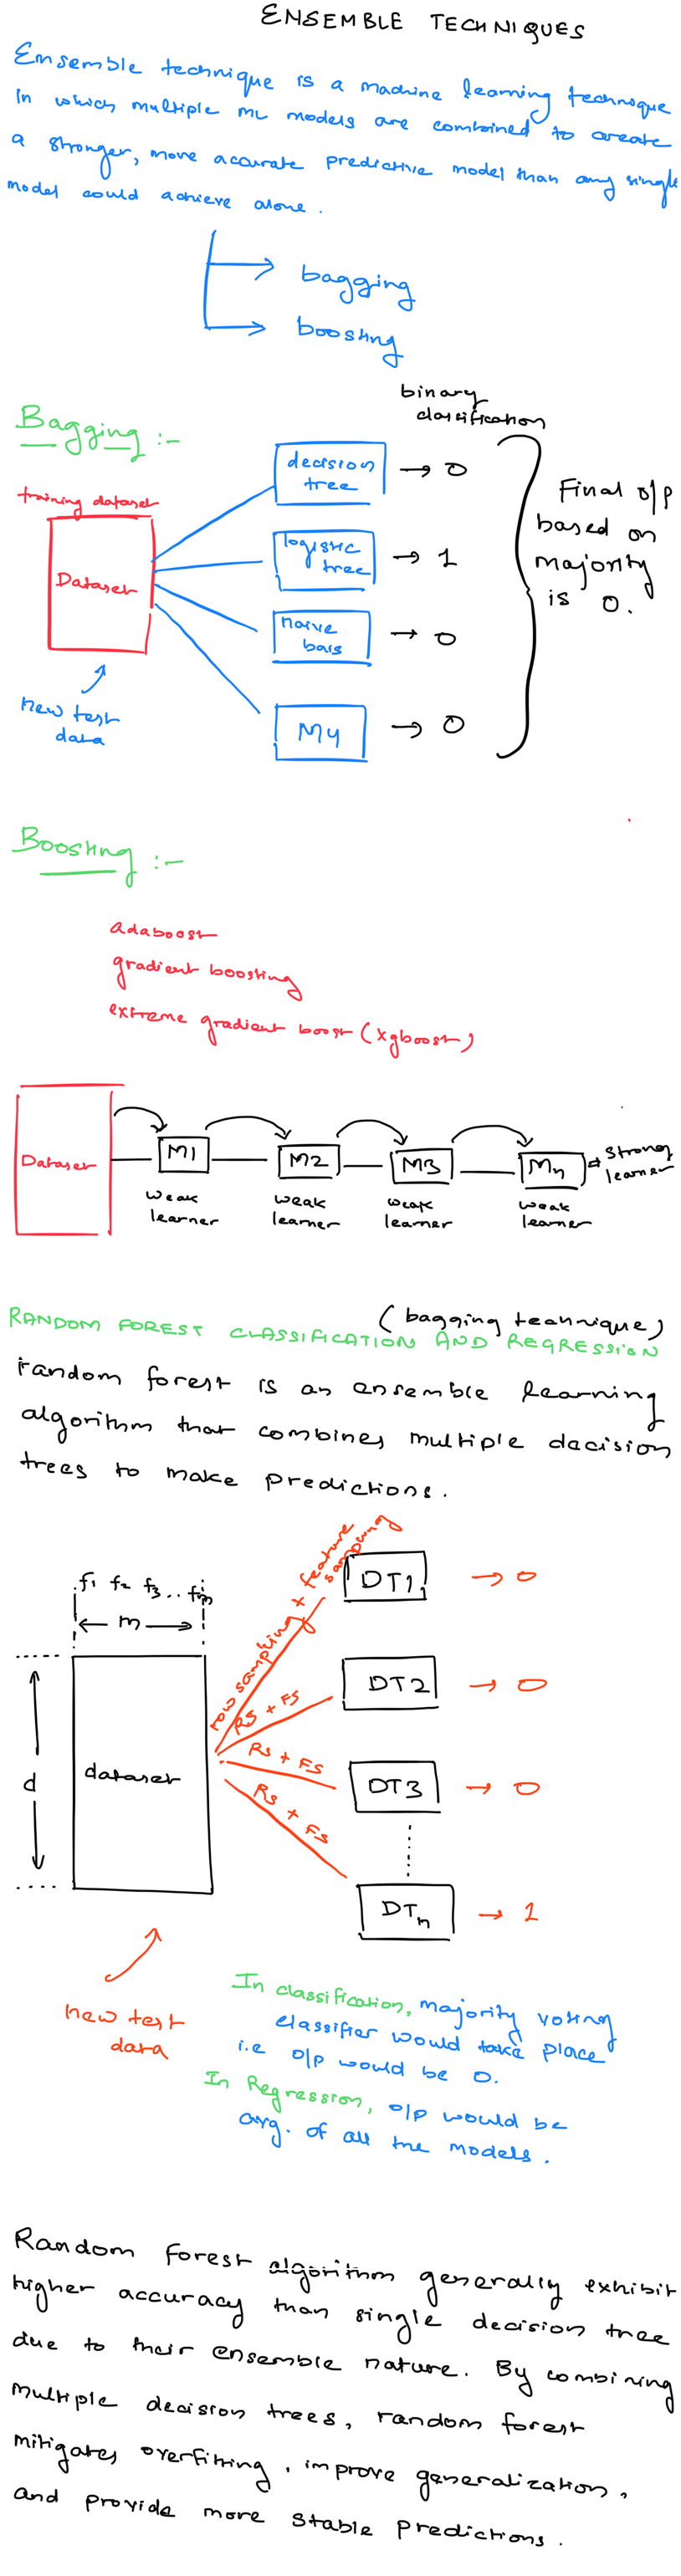 ENSEMBLE TECHNIQUES
Ensemble technique is a machine learning technique
in which multiple ML models are combined to create
a stronger, more accurate predictive model than any single
model could achieve alone.
bagging
boosting
binary
classification
Bagging :-
training dataset
Dataset
new test
data
decision
tree
→ 0
logistic
tree
→ 1
naive
bais
→ 0
M4
→ 0
Final o/p
based on
majority
is 0.
Boosting :-
adaboost
gradient boosting
extreme gradient boost (xgboost)
Dataset
M1
M2
M3
Mn
strong
learner
weak
learner
weak
learner
weak
learner
weak
learner
(bagging technique)
RANDOM FOREST CLASSIFICATION AND REGRESSION
random forest is an ensemble learning
algorithm that combines multiple decision
trees to make predictions.
f1 f2 f3 .. fm
← m →
d
dataset
row sampling + feature
sampling
RS + FS
RS + FS
RS + FS
DT1
→ 0
DT2
→ 0
DT3
→ 0
DTn
→ 1
new test
data
In classification, majority voting
classifier would take place
i.e o/p would be 0.
In Regression, o/p would be
avg. of all the models.
Random forest algorithm generally exhibit
higher accuracy than single decision tree
due to their ensemble nature. By combining
multiple decision trees, random forest
mitigates overfitting, improve generalization,
and provide more stable predictions.